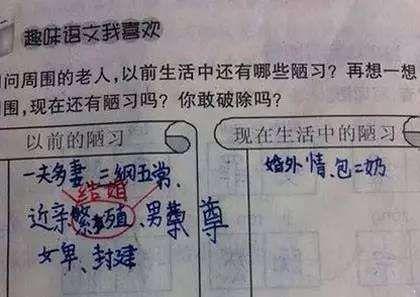 趣味语文我喜欢
问周围的老人,以前生活中还有哪些陋习?再想一想
围,现在还有陋习吗?你敢破除吗?
以前的陋习
现在生活中的陋习
一夫多妻、二綱五常、
结婚
近亲繁殖、男尊
女卑、封建
婚外情、包二奶